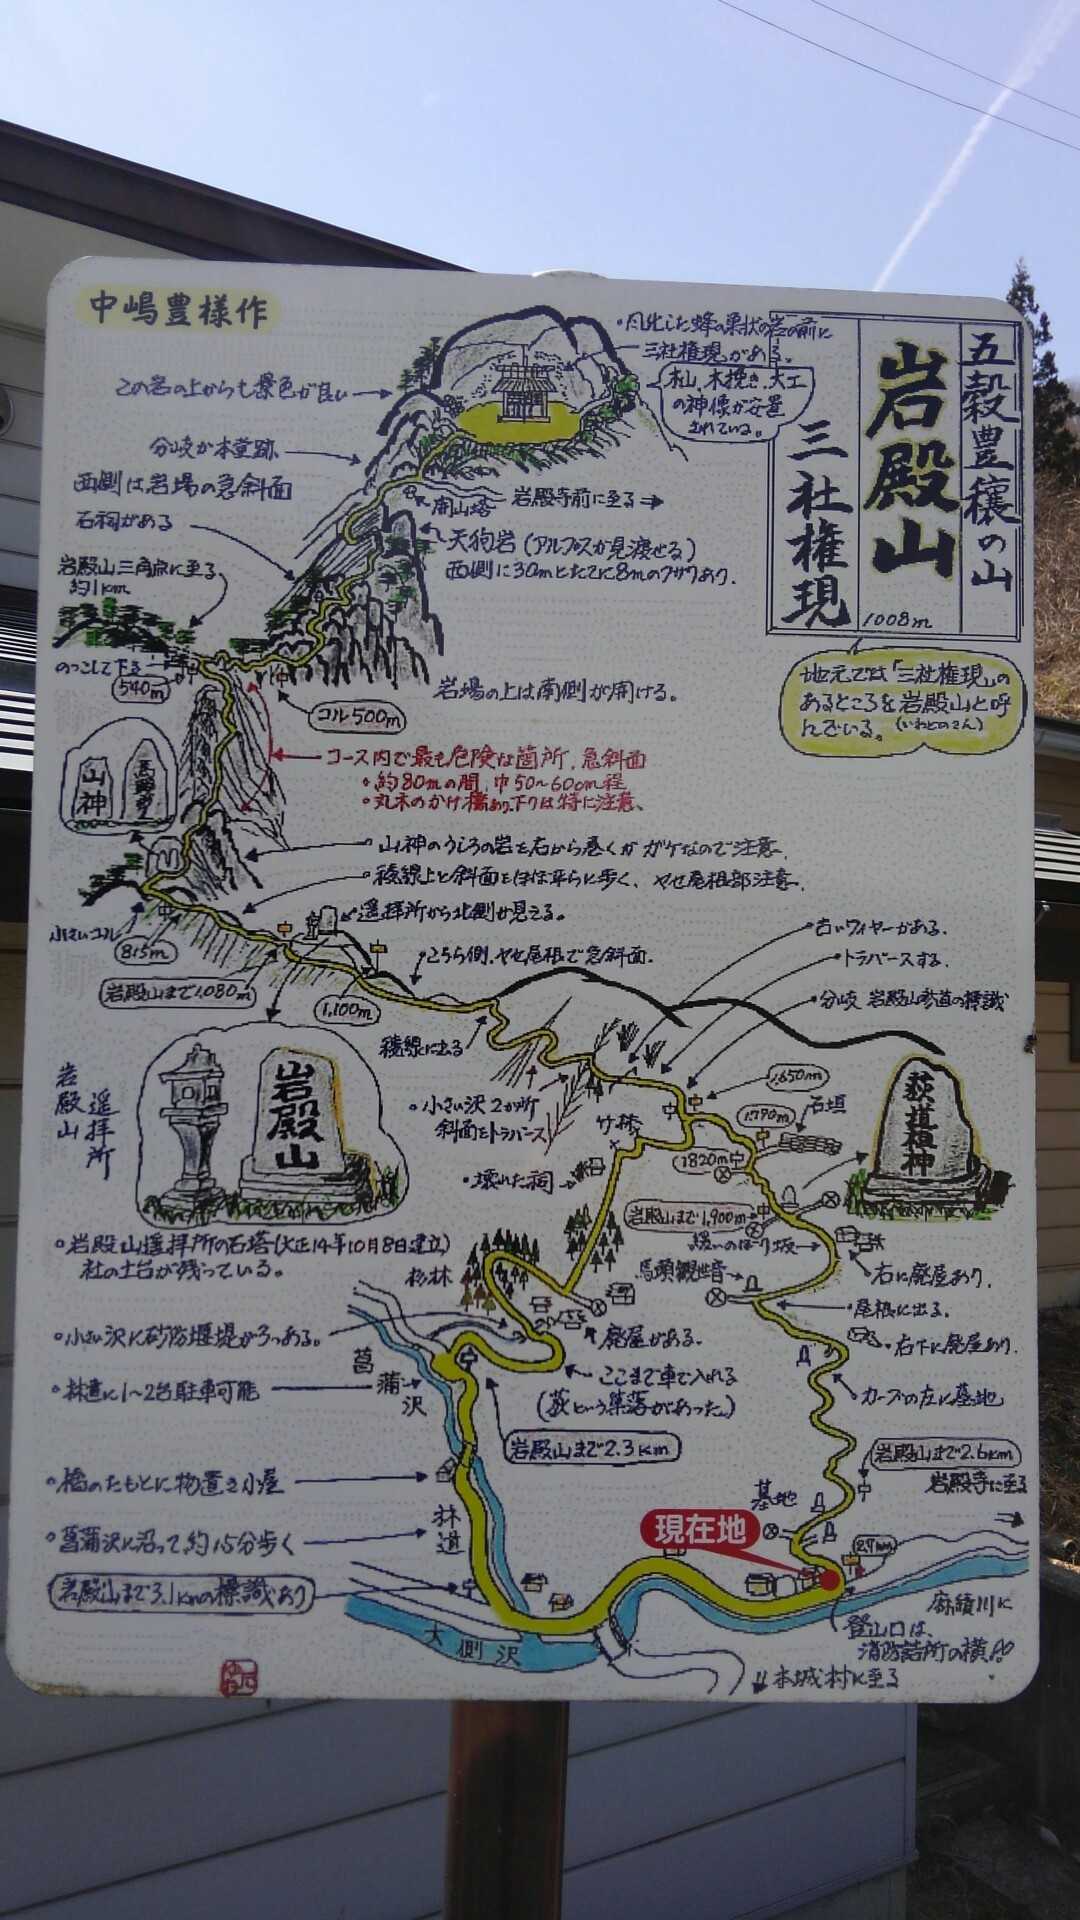 中嶋豊様作
五穀豊穣の山
岩殿山
三社権現
1008m
・風化した蜂の巣状の岩の前に
三社権現がある。
杣山、木挽き、大工
の神像が安置
されている。
この岩の上からも景色が良い
分岐が本堂跡
西側は岩場の急斜面
石祠がある
岩殿山三角点に至る
約1km
開山塔
岩殿寺前に至る
天狗岩(アルプスが見渡せる)
西側に30mとたてに8mのクサリあり.
のっこして下る
540m
コル500m
岩場の上は南側が開ける。
地元では「三社権現」の
あるところを岩殿山と呼
んでいる。(いわどのさん)
コース内で最も危険な箇所、急斜面
・約80mの間、巾50~60cm程
・丸木のかけ橋あり、下りは特に注意、
山神
・山神のうしろの岩を右から巻くが ガケなので注意、
・稜線上と斜面をほぼ平らに歩く、ヤセ尾根部注意、
小さいコル
815m
・遥拝所から北側が見える。
こちら側、ヤセ尾根で急斜面.
岩殿山まで1,080m
1,100m
稜線に出る
古いワイヤーがある.
トラバースする.
分岐 岩殿山参道の標識
1,650m
1,790m
石垣
1820m
岩殿山
遥拝所
岩殿山
・小さい沢2か所
斜面をトラバース
・壊れた祠
岩殿山まで1,900m
緩いのぼり坂
萩道祖神
・岩殿山遥拝所の石塔(大正14年10月8日建立)
社の土台が残っている。
杉林
馬頭観世音
右に廃屋あり.
尾根に出る.
・小さい沢に砂防堰堤が3つある。
廃屋がある.
・右下に廃屋あり.
菖蒲沢
ここまで車で入れる
(萩という集落があった)
カーブの左に墓地
・林道に1~2台駐車可能
岩殿山まで2.3km
岩殿山まで2.6km
岩殿寺に至る
・橋のたもとに物置き小屋
墓地
林道
現在地
2.7km
・菖蒲沢に沿って約15分歩く
岩殿山まで3.1kmの標識あり
大側沢
麻績川に
登山口は、
消防詰所の横
本城村に至る